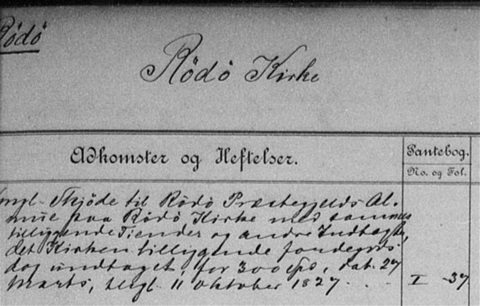 Rödö
Rödö Kirke
Adkomster og Heftelser.
Pantebog.
No. og Fol.
Kngl. Skjöde til Rödö Præstegjelds Al-
mue paa Rödö Kirke med sammes
tilliggende Tiender og andre Indtægter,
det Kirken tilliggende Jordegods
dog undtaget, for 300 Spd, dat. 27
Marts, tingl. 11 Oktober 1827.
I - 37